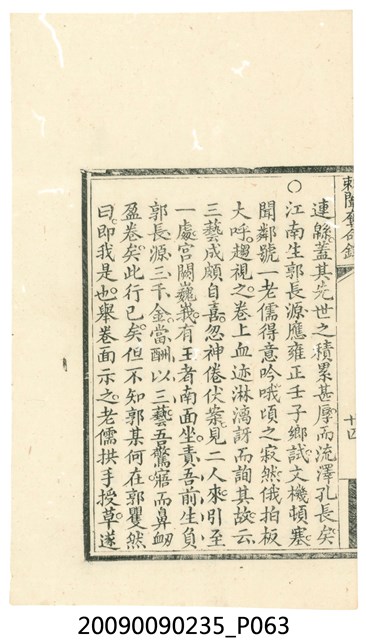 東聞奮合錄
十四
連緜蓋其先世之積累甚厚而流澤孔長矣
○江南生郭長源應雍正壬子鄉試文機頓塞
聞鄰號一老儒得意吟哦頃之寂然俄拍板
大呼。趨視之卷上血迹淋漓訝而詢其故。云
三藝成頗自喜忽神倦伏案見二人來引至
一處宮闕巍峩有王者南面坐責吾前生負
郭長源三千金當酬以三藝吾驚寤而鼻衂
盈卷矣此行已矣但不知郭某何在郭瞿然
曰即我是也。舉卷面示之。老儒拱手授草遂
20090090235_P063